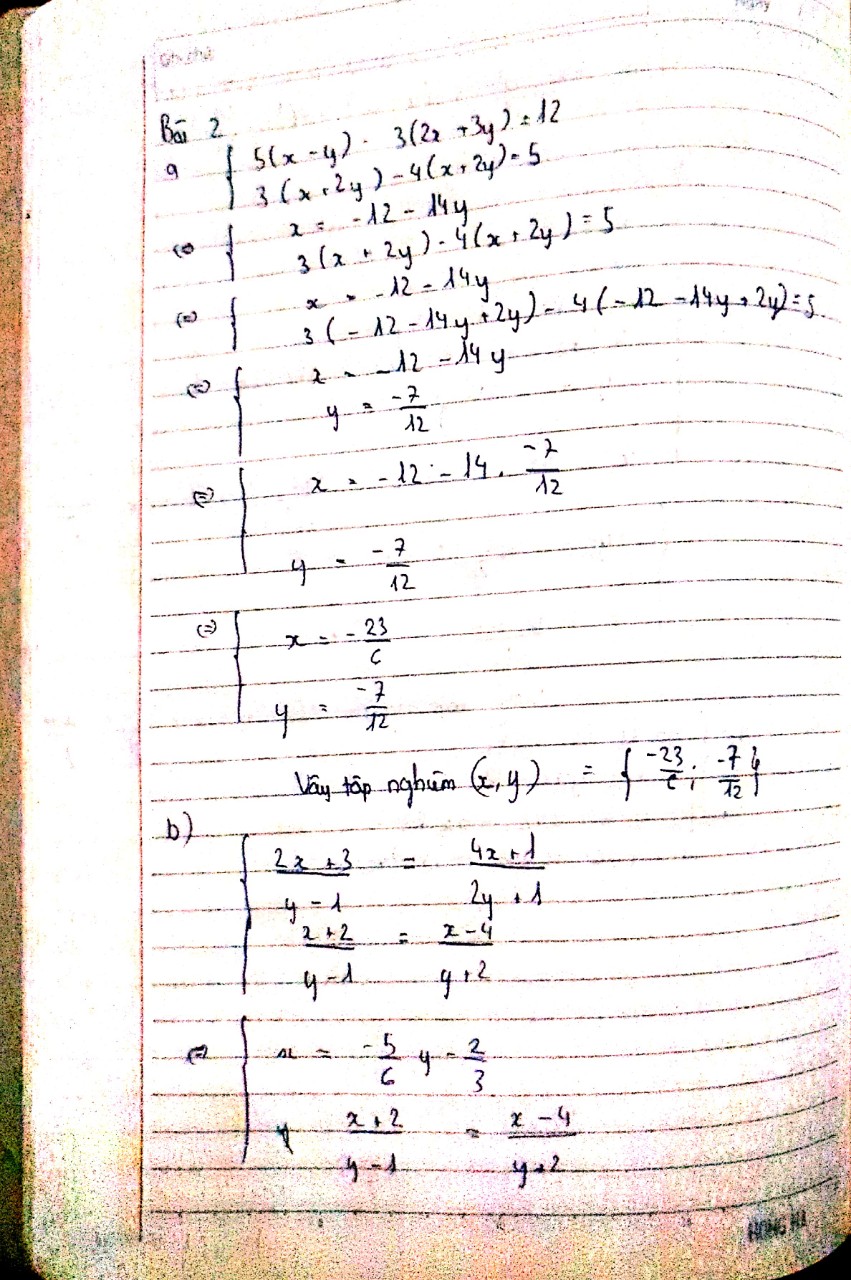 Ghi chú
Ngày
Bài 2
a { 5(x - y) - 3(2x + 3y) = 12
3(x + 2y) - 4(x + 2y) = 5
(=) { x = -12 - 14y
3(x + 2y) - 4(x + 2y) = 5
(=) { x = -12 - 14y
3(-12 - 14y + 2y) - 4(-12 - 14y + 2y) = 5
(=) { x = -12 - 14y
y = -7/12
(=) { x = -12 - 14 . -7/12
y = -7/12
(=) { x = -23/6
y = -7/12
Vậy tập nghiệm (x, y) = { -23/6 ; -7/12 }
b)
{ 2x + 3 / y - 1 = 4x + 1 / 2y + 1
x + 2 / y - 1 = x - 4 / y + 2
(=) { x = -5/6 y - 2/3
x + 2 / y - 1 = x - 4 / y + 2
HONG HA